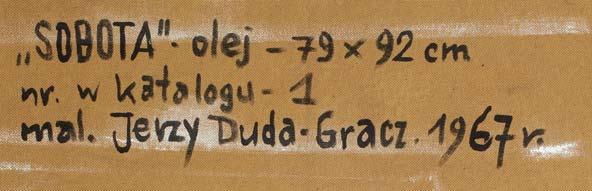 „SOBOTA"- olej - 79 x 92 cm
nr. w katalogu - 1
mal. Jerzy Duda-Gracz. 1967 r.